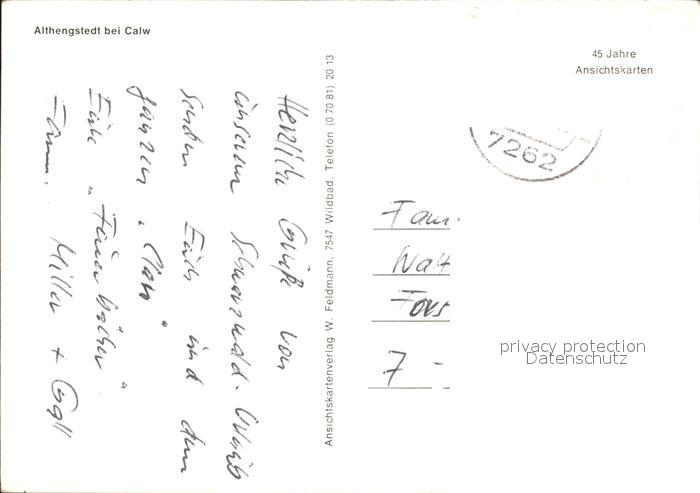 Althengstedt bei Calw
45 Jahre
Ansichtskarten
Herzliche Grüße von
unserem Schwarzwald-Urlaub
senden Euch und dem
ganzen „Clan"
Eure „Feuerbacher"
Fam. Miller + Gall
Ansichtskartenverlag W. Feldmann, 7547 Wildbad, Telefon (0 70 81) 20 13
7262
Fam.
Walt
Fors
7 -
privacy protection
Datenschutz